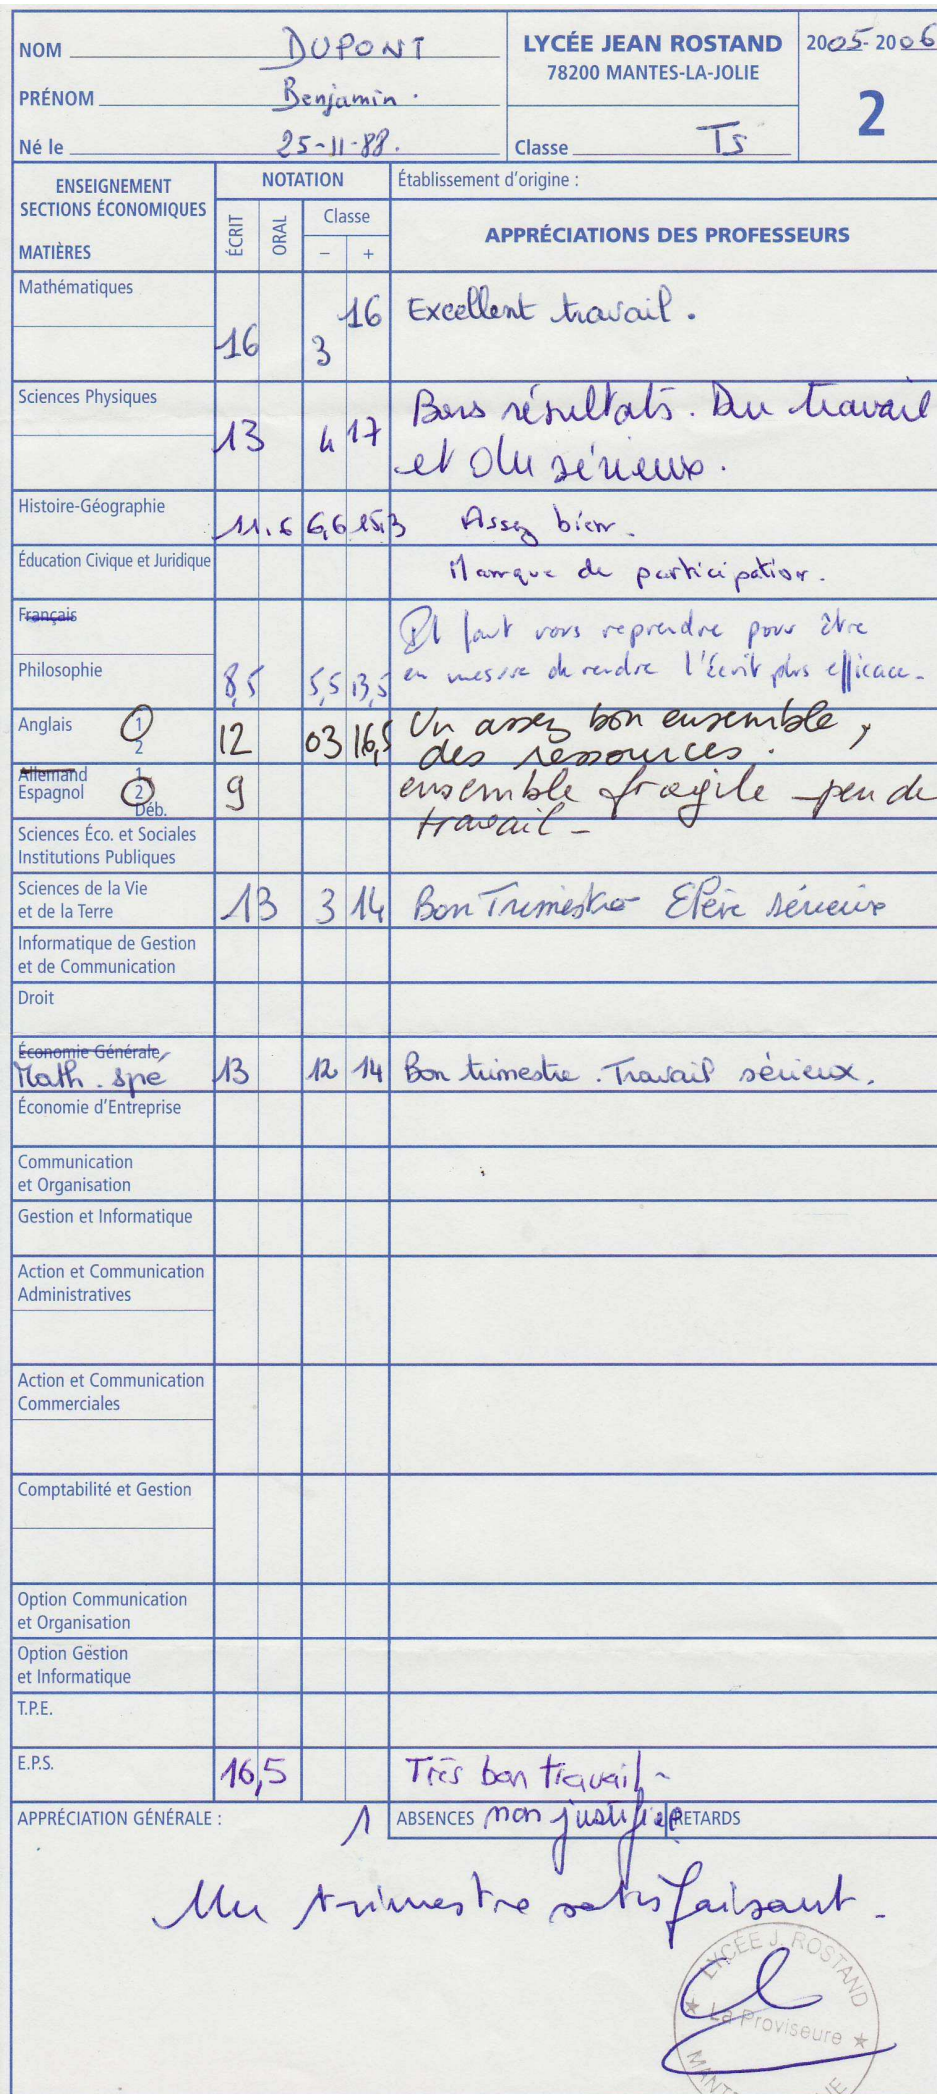 NOM DUPONT
PRÉNOM Benjamin.
Né le 25-11-88.
LYCÉE JEAN ROSTAND
78200 MANTES-LA-JOLIE
Classe TS
2005-2006
2
ENSEIGNEMENT
SECTIONS ÉCONOMIQUES
MATIÈRES
NOTATION
ÉCRIT
ORAL
Classe
– +
Établissement d'origine :
APPRÉCIATIONS DES PROFESSEURS
Mathématiques
16 3 16 Excellent travail.
Sciences Physiques
13 4 17 Bons résultats. Du travail
et du sérieux.
Histoire-Géographie
11.6 6,6 15,3 Assez bien.
Éducation Civique et Juridique
Manque de participation.
Français
Il faut vous reprendre pour être
Philosophie 8,5 5,5 13,5 en mesure de rendre l'écrit plus efficace.
Anglais 1 12 03 16,5 Un assez bon ensemble,
2 des ressources.
Allemand 1
Espagnol 2 9 ensemble fragile - peu de
Déb. travail -
Sciences Éco. et Sociales
Institutions Publiques
Sciences de la Vie
et de la Terre 13 3 14 Bon Trimestre Elève sérieux
Informatique de Gestion
et de Communication
Droit
Économie Générale
Math. spé 13 12 14 Bon trimestre. Travail sérieux.
Économie d'Entreprise
Communication
et Organisation
Gestion et Informatique
Action et Communication
Administratives
Action et Communication
Commerciales
Comptabilité et Gestion
Option Communication
et Organisation
Option Gestion
et Informatique
T.P.E.
E.P.S. 16,5 Très bon travail -
APPRÉCIATION GÉNÉRALE : 1 ABSENCES non justifiée RETARDS
Un trimestre satisfaisant -
LYCÉE J. ROSTAND
La Proviseure